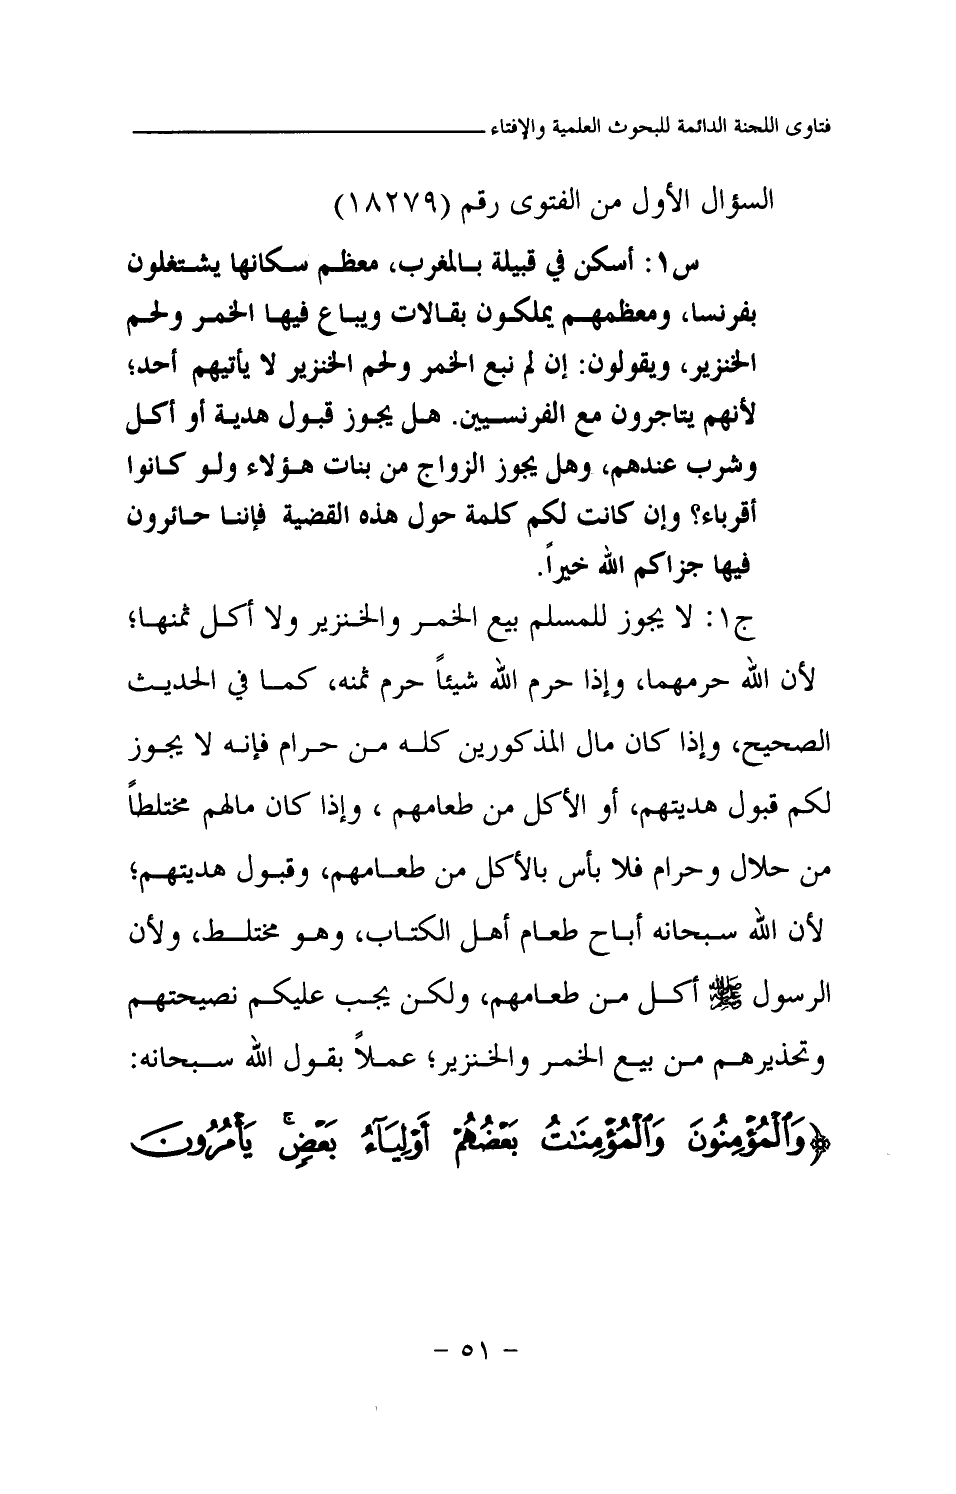 فتاوى اللجنة الدائمة للبحوث العلمية والإفتاء
السؤال الأول من الفتوى رقم (١٨٢٧٩)
س١: أسكن في قبيلة بالمغرب، معظم سكانها يشتغلون
بفرنسا، ومعظمهم يملكون بقالات ويباع فيها الخمر ولحم
الخنزير، ويقولون: إن لم نبع الخمر ولحم الخنزير لا يأتيهم أحد؛
لأنهم يتاجرون مع الفرنسيين. هل يجوز قبول هدية أو أكل
وشرب عندهم، وهل يجوز الزواج من بنات هؤلاء ولو كانوا
أقرباء؟ وإن كانت لكم كلمة حول هذه القضية فإننا حائرون
فيها جزاكم الله خيراً.
ج١: لا يجوز للمسلم بيع الخمر والخنزير ولا أكل ثمنها؛
لأن الله حرمهما، وإذا حرم الله شيئاً حرم ثمنه، كما في الحديث
الصحيح، وإذا كان مال المذكورين كله من حرام فإنه لا يجوز
لكم قبول هديتهم، أو الأكل من طعامهم ، وإذا كان مالهم مختلطاً
من حلال وحرام فلا بأس بالأكل من طعامهم، وقبول هديتهم؛
لأن الله سبحانه أباح طعام أهل الكتاب، وهو مختلط، ولأن
الرسول ﷺ أكل من طعامهم، ولكن يجب عليكم نصيحتهم
وتحذيرهم من بيع الخمر والخنزير؛ عملاً بقول الله سبحانه:
﴿وَٱلْمُؤْمِنُونَ وَٱلْمُؤْمِنَٰتُ بَعْضُهُمْ أَوْلِيَآءُ بَعْضٍۚ يَأْمُرُونَ
- ٥١ -